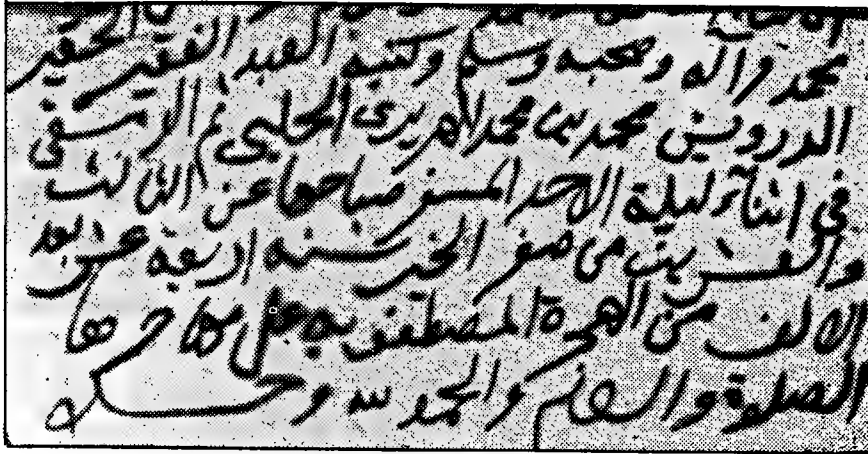 محمد وآله وصحبه وسلم وكتبه العبد الفقير الحقير
الدرويش محمد بن محمد الحلبي ثم الدمشقي
في اثناء ليلة الاحد المسفر صباحها عن الثالث
والعشرين من صفر الخير سنة اربعة عشر بعد
الالف من الهجرة المصطفوية على مهاجرها
الصلوة والسلام والحمد لله وحده